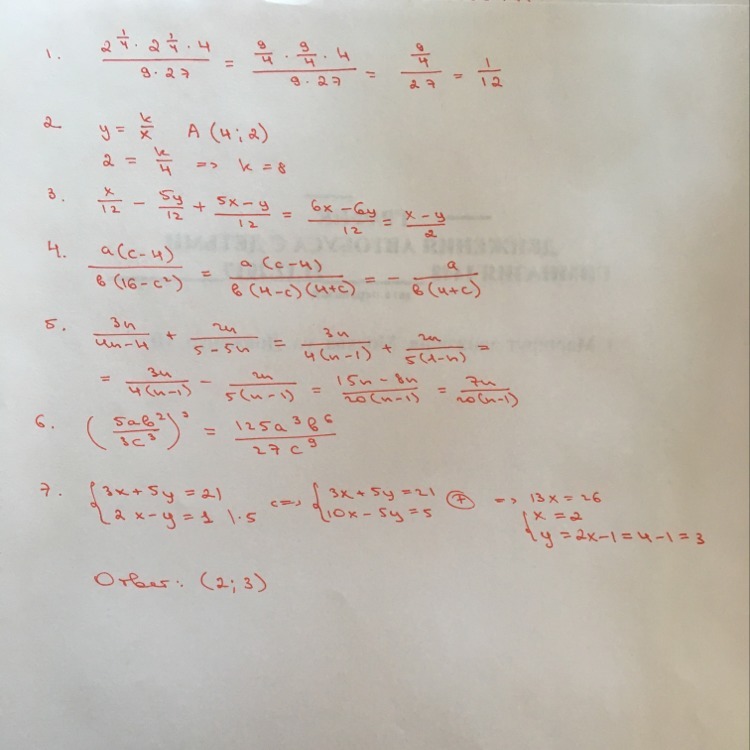 1. (2 1/4 · 2 1/4 · 4)/(9 · 27) = (9/4 · 9/4 · 4)/(9 · 27) = (9/4)/27 = 1/12
2. y = k/x A (4; 2)
2 = k/4 => k = 8
3. x/12 − 5y/12 + (5x − y)/12 = (6x − 6y)/12 = (x − y)/2
4. a(c − 4)/(в(16 − c²)) = a(c − 4)/(в(4 − c)(4 + c)) = − a/(в(4 + c))
5. 3n/(4n − 4) + 2n/(5 − 5n) = 3n/(4(n − 1)) + 2n/(5(1 − n)) =
= 3n/(4(n − 1)) − 2n/(5(n − 1)) = (15n − 8n)/(20(n − 1)) = 7n/(20(n − 1))
6. (5aв²/3c³)³ = 125a³в⁶/27c⁹
7. {3x + 5y = 21 <=> {3x + 5y = 21 (+) => 13x = 26
{2x − y = 1 | · 5 {10x − 5y = 5 {x = 2
{y = 2x − 1 = 4 − 1 = 3
Ответ: (2; 3)